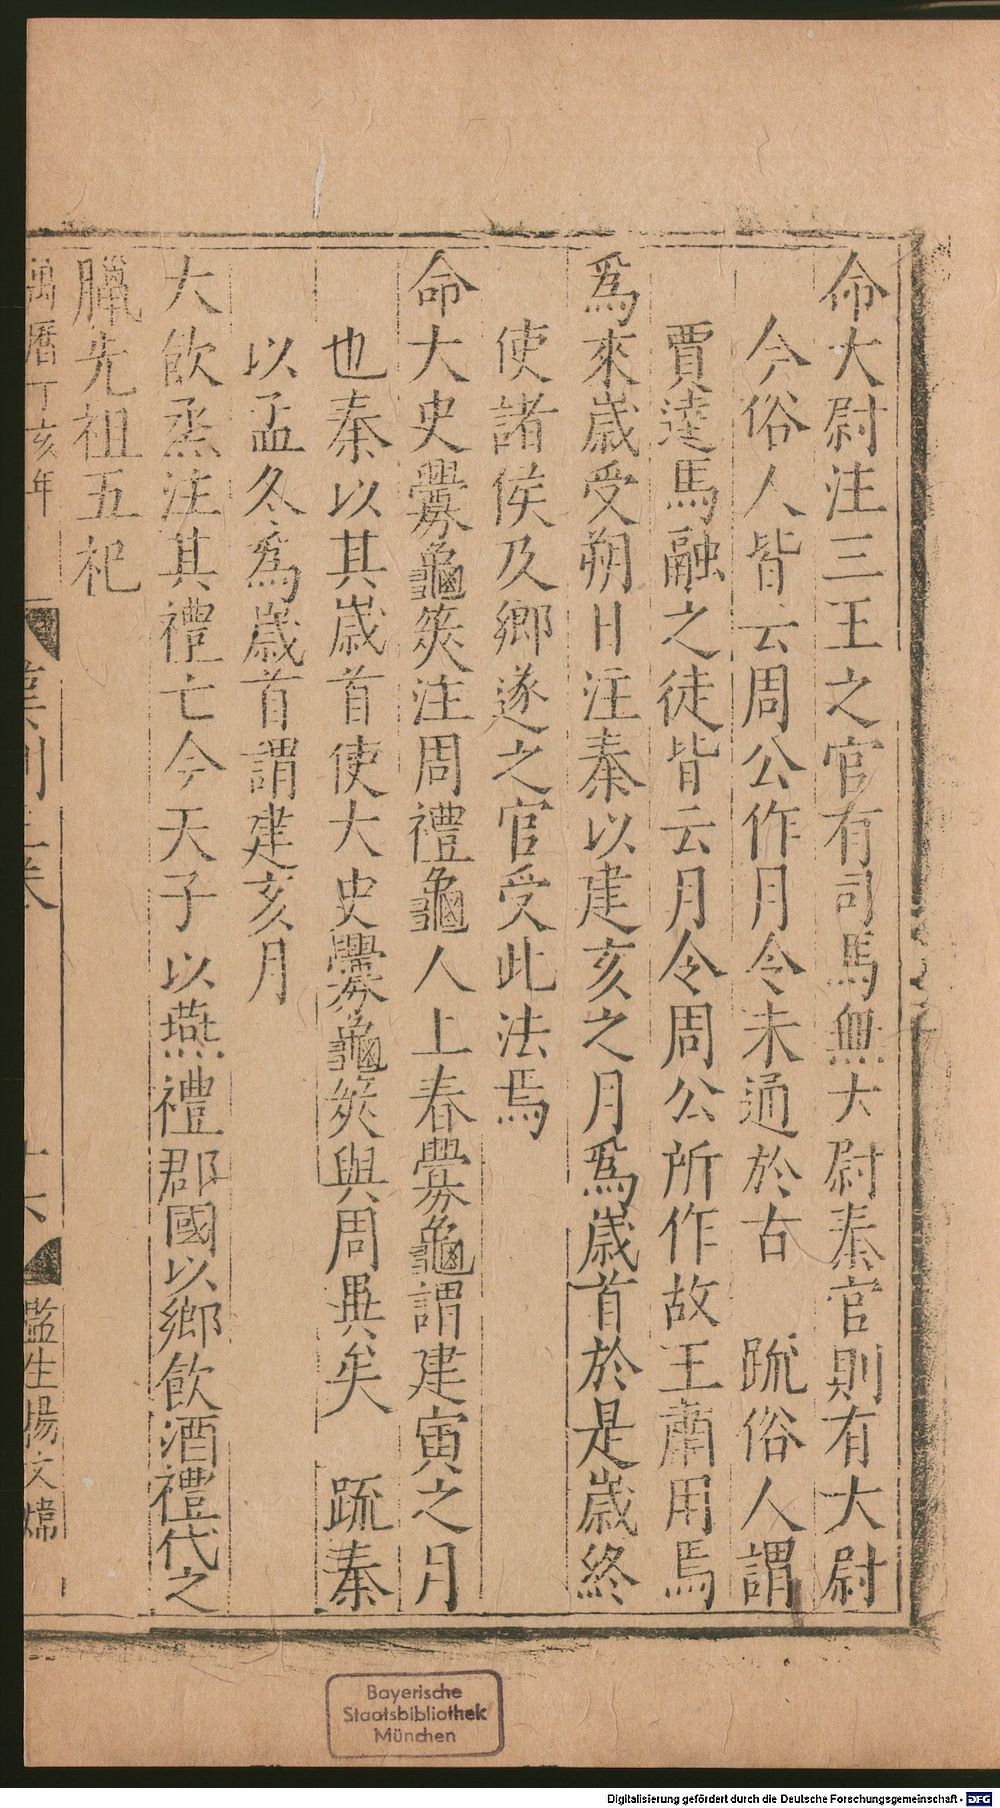 命大尉注三王之官有司馬無大尉秦官則有大尉
今俗人皆云周公作月令未通於古　疏俗人謂
賈逵馬融之徒皆云月令周公所作故王肅用焉
爲來歲受朔日注秦以建亥之月爲歲首於是歲終
使諸侯及鄉遂之官受此法焉
命大史釁龜筴注周禮龜人上春釁龜謂建寅之月
也秦以其歲首使大史釁龜筴與周異矣　疏秦
以孟冬爲歲首謂建亥月
大飲烝注其禮亡今天子以燕禮郡國以鄉飲酒禮代之
臘先祖五祀
萬曆丁亥年
十六
監生楊文
Bayerische
Staatsbibliothek
München
Digitalisierung gefördert durch die Deutsche Forschungsgemeinschaft - DFG